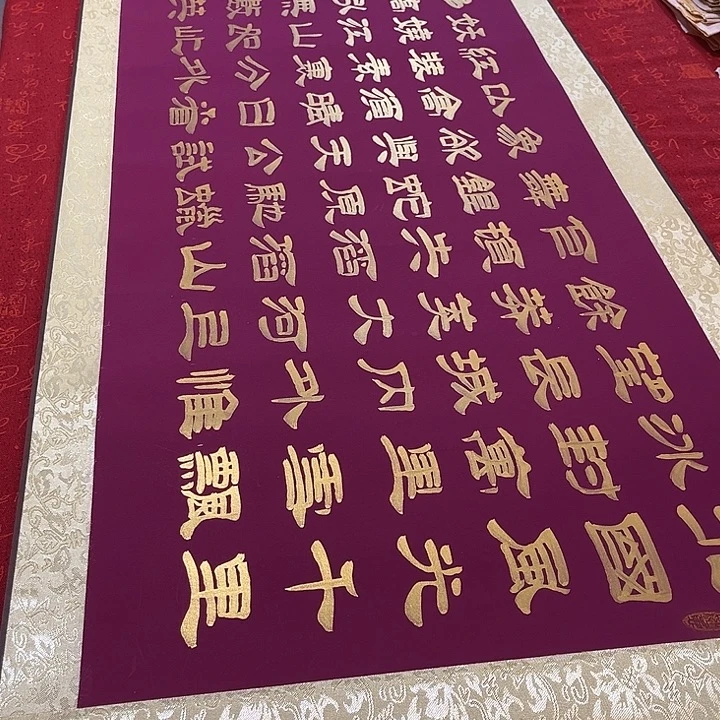 北國風光千里
冰封萬里雪飄
望長城内外惟
餘莽莽大河上
下頓失滔滔山
舞銀蛇原馳蠟
象欲與天公試
比高須晴日看
紅裝素裹分外
妖嬈江山如此
多嬌引無數英